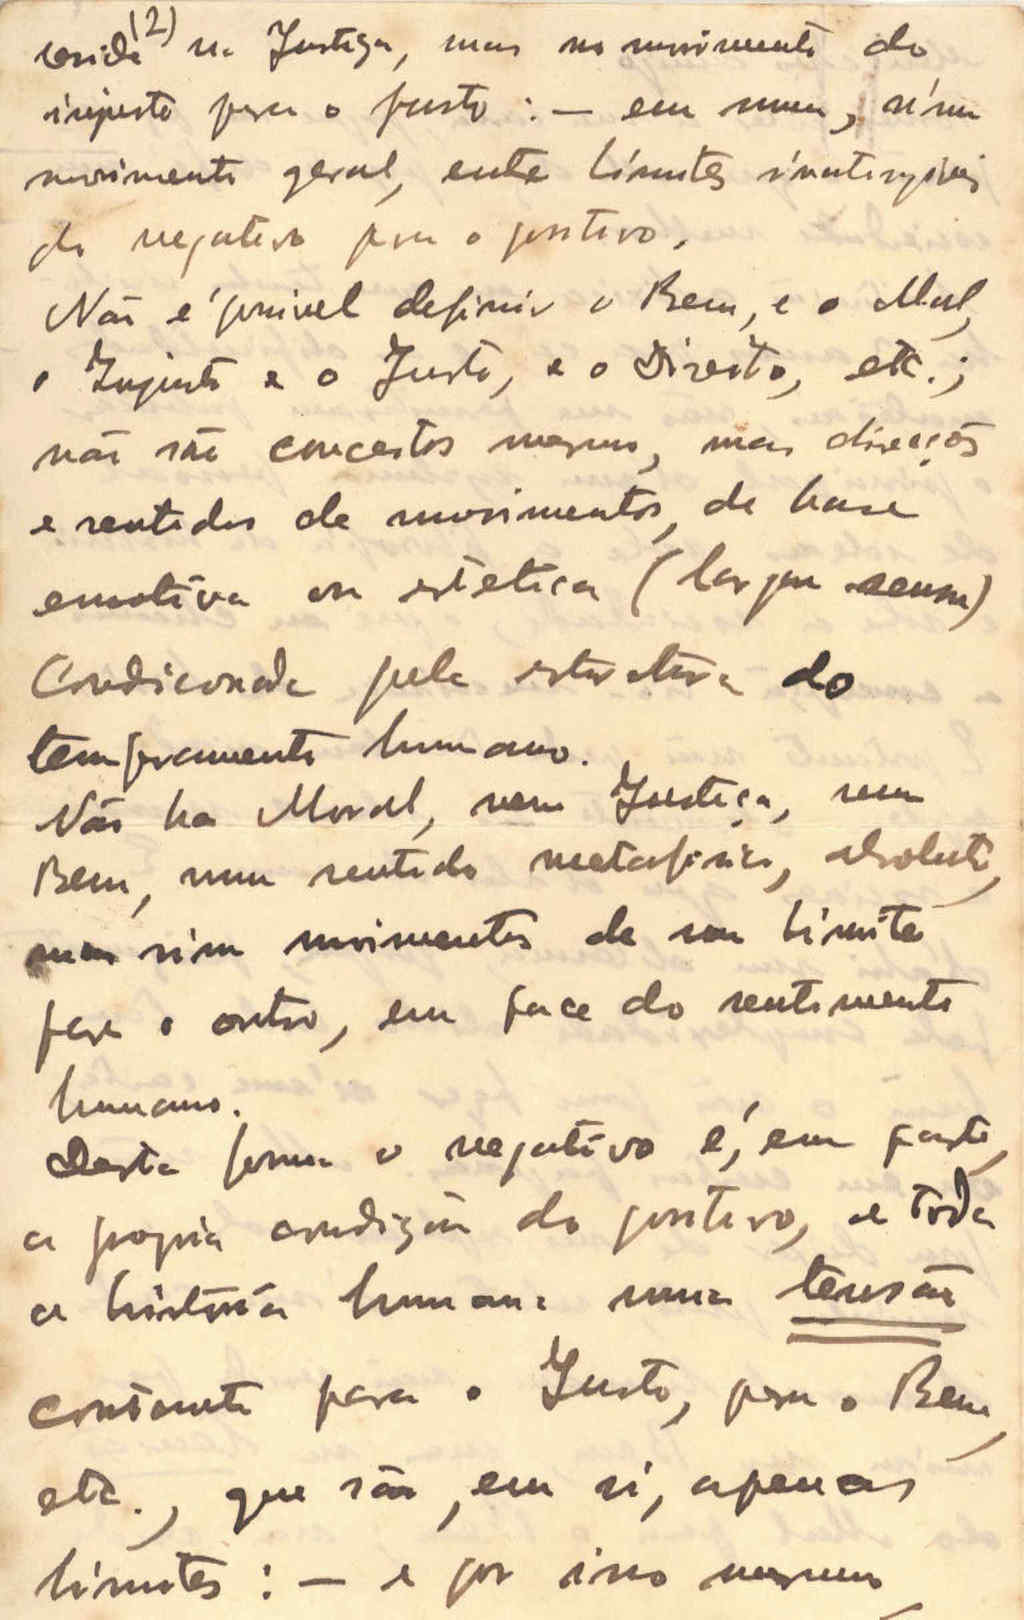 (2)
reside na Justiça, mas no movimento do
injusto para o justo : — em suma, sim
movimento geral, entre límites inatingíveis
do negativo para o positivo.
Não é possivel definir o Bem, e o Mal,
o Injusto e o Justo, e o Direito, etc.;
não são conceitos mesmo, mas direcções
e sentidos de movimentos, de base
emotiva ou estética (largo sensu)
Condicionada pela estrutura do
temperamento humano.
Não ha Moral, nem Justiça, nem
Bem, num sentido metafisico, absoluto,
mas sim movimentos de um límite
para o outro, em face do sentimento
humano.
Desta forma o negativo é, em parte,
a propria condição do positivo, e toda
a história humana uma tensão
constante para o Justo, para o Bem,
etc., que são, em si, apenas
límites : — e por isso mesmo,